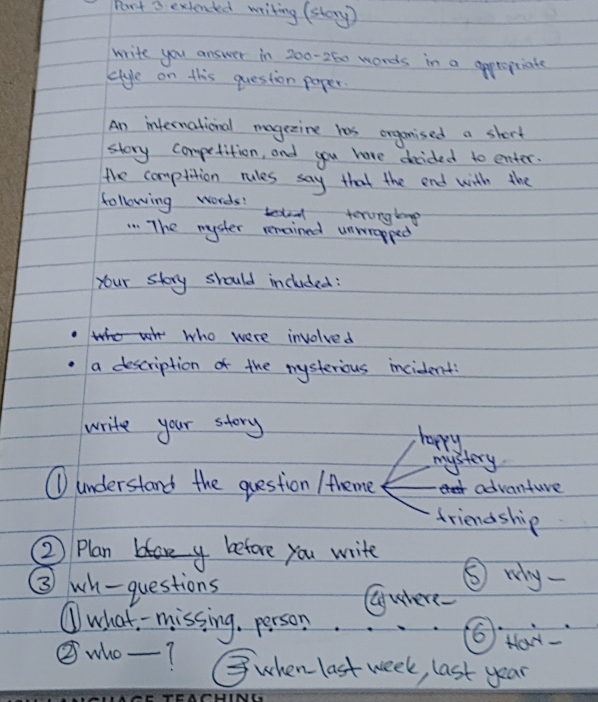 Part 3 extended writing (story)
write you answer in 200-250 words in a appropriate
style on this question paper.
An international magezine has organised a short
story competition, and you have decided to enter.
the comptition rules say that the end with the
following words:
terungkap
... The myster remained unwrapped
Your story should included:
• who wh who were involved
• a description of the mysterious incident:
write your story
happy
mystery
① understand the question/theme
advanture
friendship
② Plan before you write
③ wh-questions
⑤ why-
① what-missing person
④ where-
② who —?
⑥ How-
③ when-last week, last year
LANGUAGE TEACHING